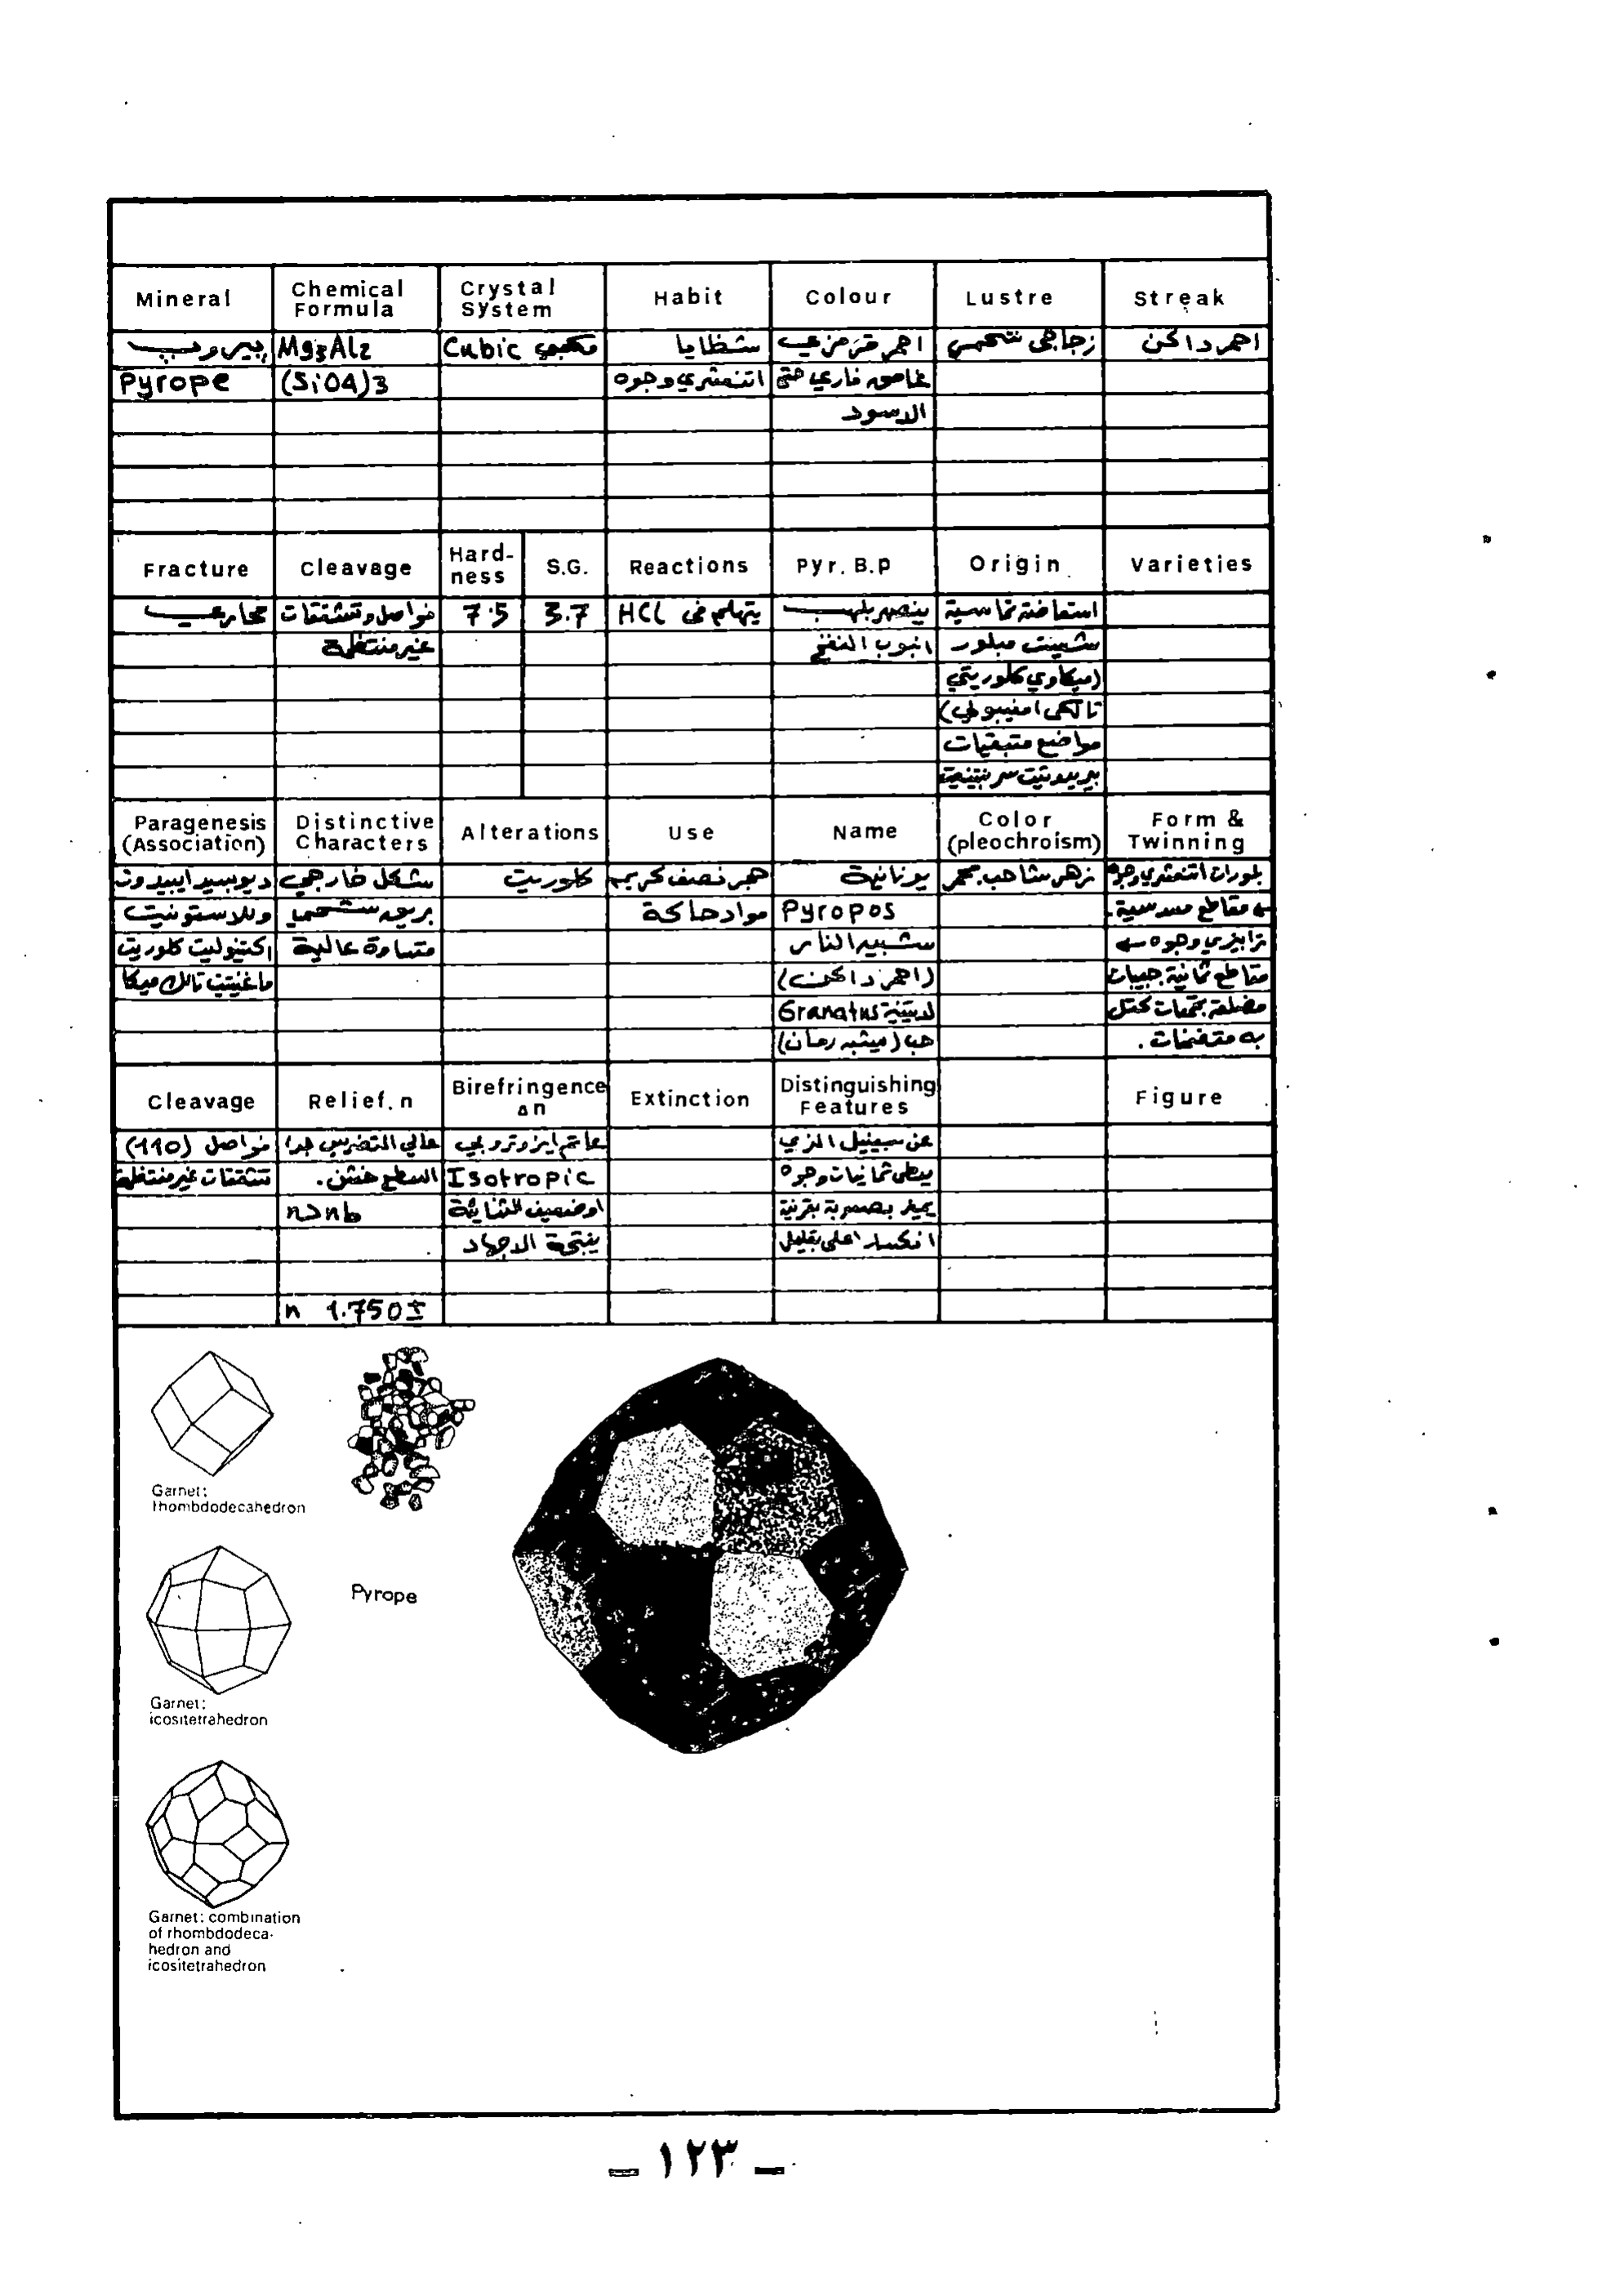 Mineral
Chemical Formula
Crystal System
Habit
Colour
Lustre
Streak
بيروب
Mg3Al2
Cubic مكعبي
شظايا
احمر قرمزي
زجاجي شحمي
احمر داكن
Pyrope
(SiO4)3
اثنعشري وجوه
غامق ناري حتى
الاسود
Fracture
Cleavage
Hard-ness
S.G.
Reactions
Pyr. B.p
Origin
Varieties
محاري
فواصل وتشققات
7.5
3.7
يتهلم في HCL
ينصهر بلهب
استحاضة تماسية
غير منتظمة
انبوب النفخ
شيست مبلور
(ميكاوي كلوريتي
تالكي امفيبولي)
مواضع متبقيات
بيريدوتيت سربنتينية
Paragenesis (Association)
Distinctive Characters
Alterations
Use
Name
Color (pleochroism)
Form & Twinning
ديوبسيد ايبيدوت
بشكل خارجي
كلوريت
حجر نصف كريم
يونانية
زهر شاحب محمر
بلورات اثنعشري وجوه
وللاستونيت
بريق شحمي
مواد حاكة
Pyropos
← مقاطع مسدسية
اكتينوليت كلوريت
قساوة عالية
شبيه النار
ترابيزي وجوه ←
ماغنيتيت تالك ميكا
(احمر داكن)
مقاطع ثمانية حبيبات
لاتينية Granatus
مضلعة تجمعات كتل
حب (ميشبه رمان)
Cleavage
Relief. n
Birefringence Δn
Extinction
Distinguishing Features
Figure
فواصل (110)
عالي التضريس جدا
عاتم ايزوتروبي
عن سبينيل الذي
تشققات غير منتظمة
السطح خشن.
Isotropic
يعطي ثمانيات وجوه
n>nb
او ضعيف الثنائية
يميز بصعوبة بقرنية
نتيجة الاجهاد
انكسار اعلى بقليل
n 1.750±
Garnet:
rhombdodecahedron
Pyrope
Garnet:
icositetrahedron
Garnet: combination
of rhombdodeca-
hedron and
icositetrahedron
_ ١٢٣ _